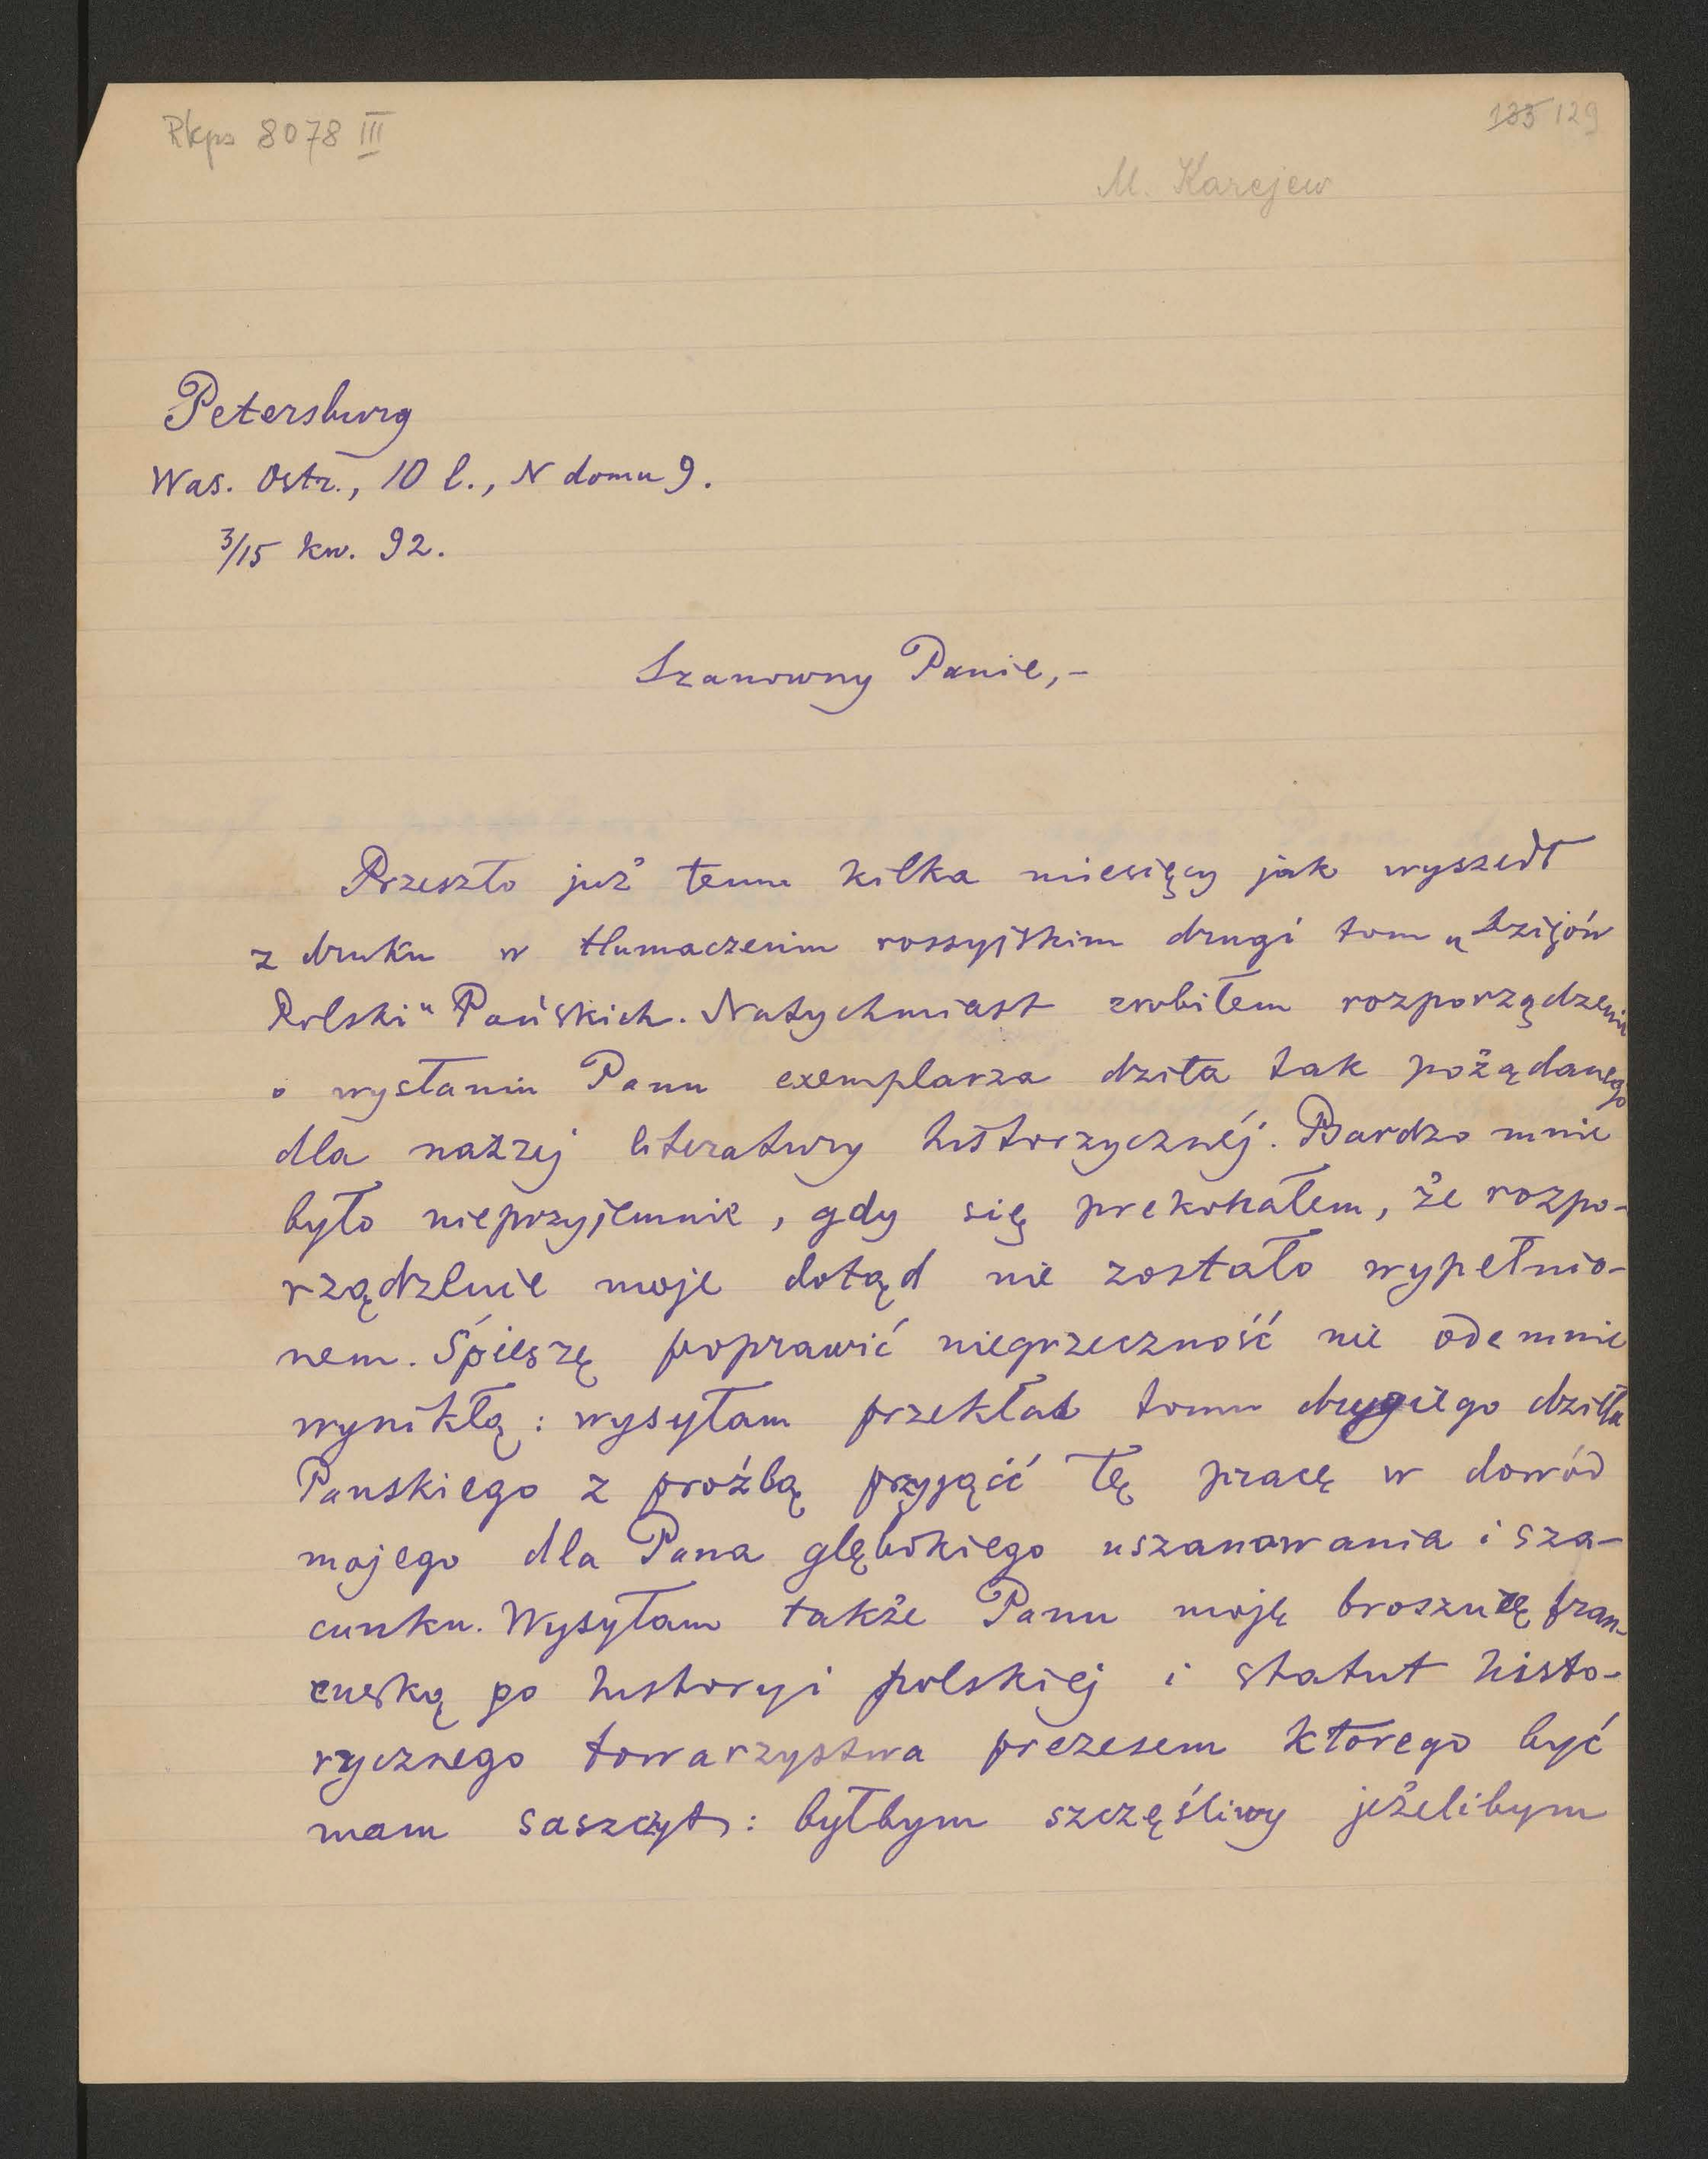 Rkps 8078 III
135 129
M. Karejew
Petersburg
Was. Ostr., 10 l., N domu 9.
3/15 kw. 92.
Szanowny Panie,-
Przeszło już temu kilka miesięcy jak wyszedł
z druku w tłumaczeniu rossyjskim drugi tom „Dziejów
Polski" Pańskich. Natychmiast zrobiłem rozporządzenie
o wysłaniu Panu exemplarza dzieła tak pożądanego
dla naszej literatury historzycznéj. Bardzo mnie
było nieprzyjemnie, gdy się prekonałem, że rozpo-
rządzenie moje dotąd nie zostało wypełnio-
nem. Śpieszę poprawić niegrzeczność nie odemnie
wynikłą: wysyłam przekład tomu drugiego dzieła
Panskiego z prośbą przyjąć tę pracę w dowód
mojego dla Pana głębokiego uszanowania i sza-
cunku. Wysyłam także Panu moję broszurę fran-
cuską po historyi polskiej i statut histo-
rycznego towarzystwa prezesem ktorego być
mam saszczyt: byłbym szczęśliwy jeżelibym